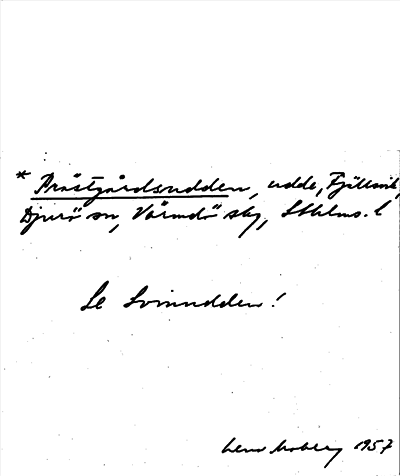 * Prästgårdsudden, udde, Fjällsvik,
Djurö sn, Värmdö skg, Sthlms. l
Se Svinudden!
Lena Moberg 1957